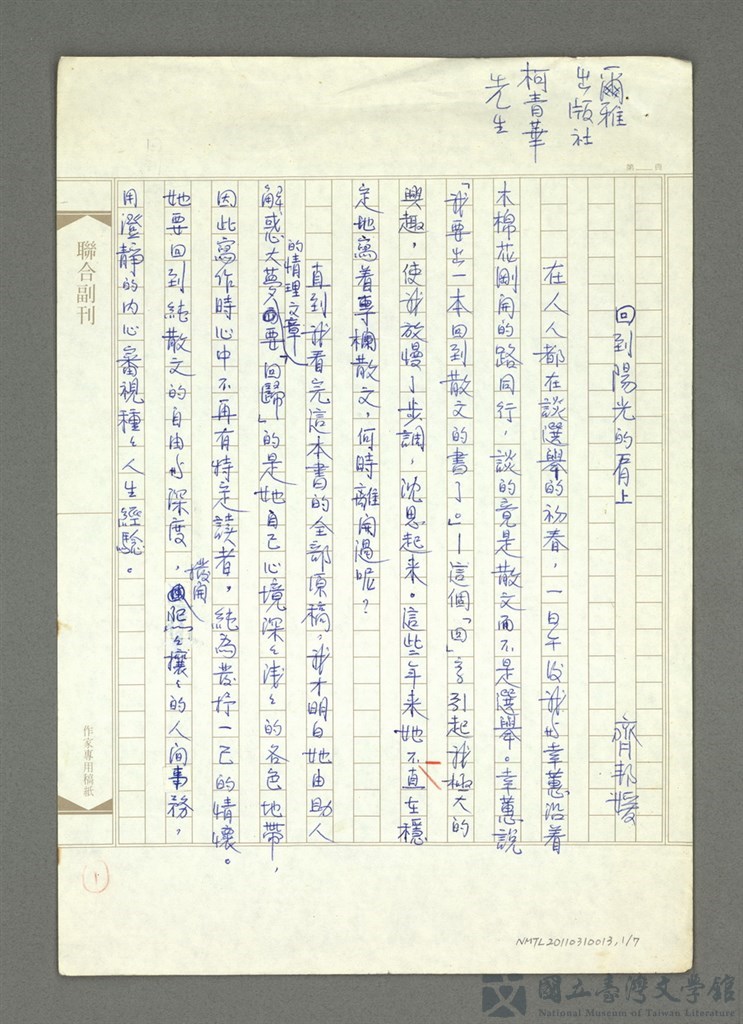 爾雅
出版社
柯青華
先生
第　頁
回到陽光的看上
齊邦媛
在人人都在談選舉的初春，一日午后我与幸蕙沿着
木棉花剛開的路同行，談的竟是散文而不是選舉。幸蕙說
「我要出一本回到散文的書了。」—這個「回」字引起我極大的
興趣，使我放慢了步調，沈思起來。這些年來她不直在穩
定地寫着專欄散文，何時離開過呢？
直到我看完這本書的全部原稿，我才明白她由助人
解惑大夢的情理文章「要回歸」的是她自己心境深々淺々的各色地帶，
因此寫作時心中不再有特定讀者，純為發抒一己的情懷。
她要回到純散文的自由与深度，撥開熙々攘々的人间事務，
用澄靜的內心審視種々人生經驗。
聯合副刊
作家專用稿紙
1
NMTL20110310013,1/7
國立臺灣文學館
National Museum of Taiwan Literature